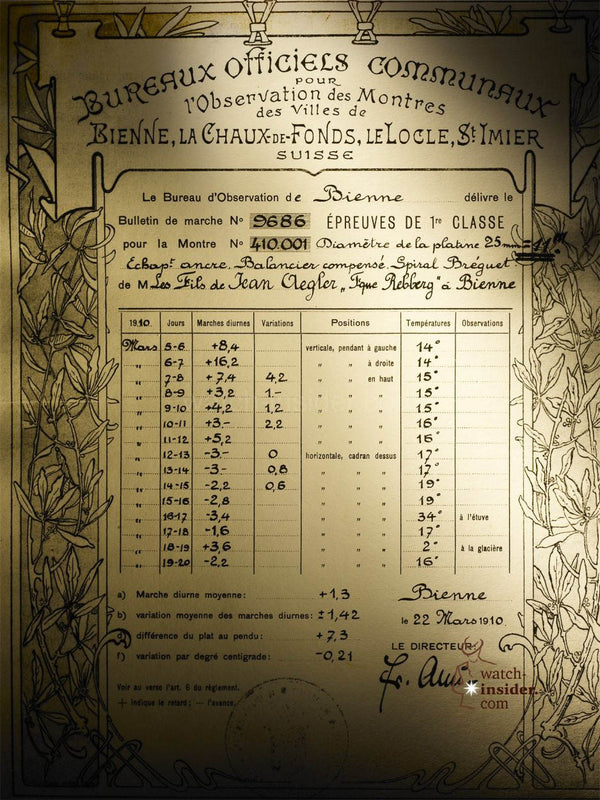 BUREAUX OFFICIELS COMMUNAUX
POUR
l'Observation des Montres
des Villes de
BIENNE, LA CHAUX-DE-FONDS, LE LOCLE, St IMIER
SUISSE
Le Bureau d'Observation de Bienne délivre le
Bulletin de marche No 9686 ÉPREUVES DE 1re CLASSE
pour la Montre No 410.001 Diamètre de la platine 25 mm = 11.'''
Échapt ancre, Balancier compensé, Spiral Bréguet
de M Les Fils de Jean Aegler „Fque Rebberg" à Bienne
1910. Jours Marches diurnes Variations Positions Températures Observations
Mars 5-6 +8,4 verticale, pendant à gauche 14°
„ 6-7 +16,2 „ „ à droite 14°
„ 7-8 +7,4 4,2 „ „ en haut 15°
„ 8-9 +3,2 1.- „ „ „ 15°
„ 9-10 +4,2 1,2 „ „ „ 15°
„ 10-11 +3.- 2,2 „ „ „ 16°
„ 11-12 +5,2 „ „ „ 16°
„ 12-13 -3.- 0 horizontale, cadran dessus 17°
„ 13-14 -3.- 0,8 „ „ „ 17°
„ 14-15 -2,2 0,6 „ „ „ 19°
„ 15-16 -2,8 „ „ „ 19°
„ 16-17 -3,4 „ „ „ 34° à l'étuve
„ 17-18 -1,6 „ „ „ 17°
„ 18-19 +3,6 „ „ „ 2° à la glacière
„ 19-20 -2,2 „ „ „ 16°
a) Marche diurne moyenne: +1,3
b) variation moyenne des marches diurnes: ±1,42
d) différence du plat au pendu: +7,3
f) variation par degré centigrade: -0,21
Voir au verso l'art. 6 du règlement.
+ indique le retard; — l'avance.
Bienne
le 22 Mars 1910.
LE DIRECTEUR:
watch-
insider.
com